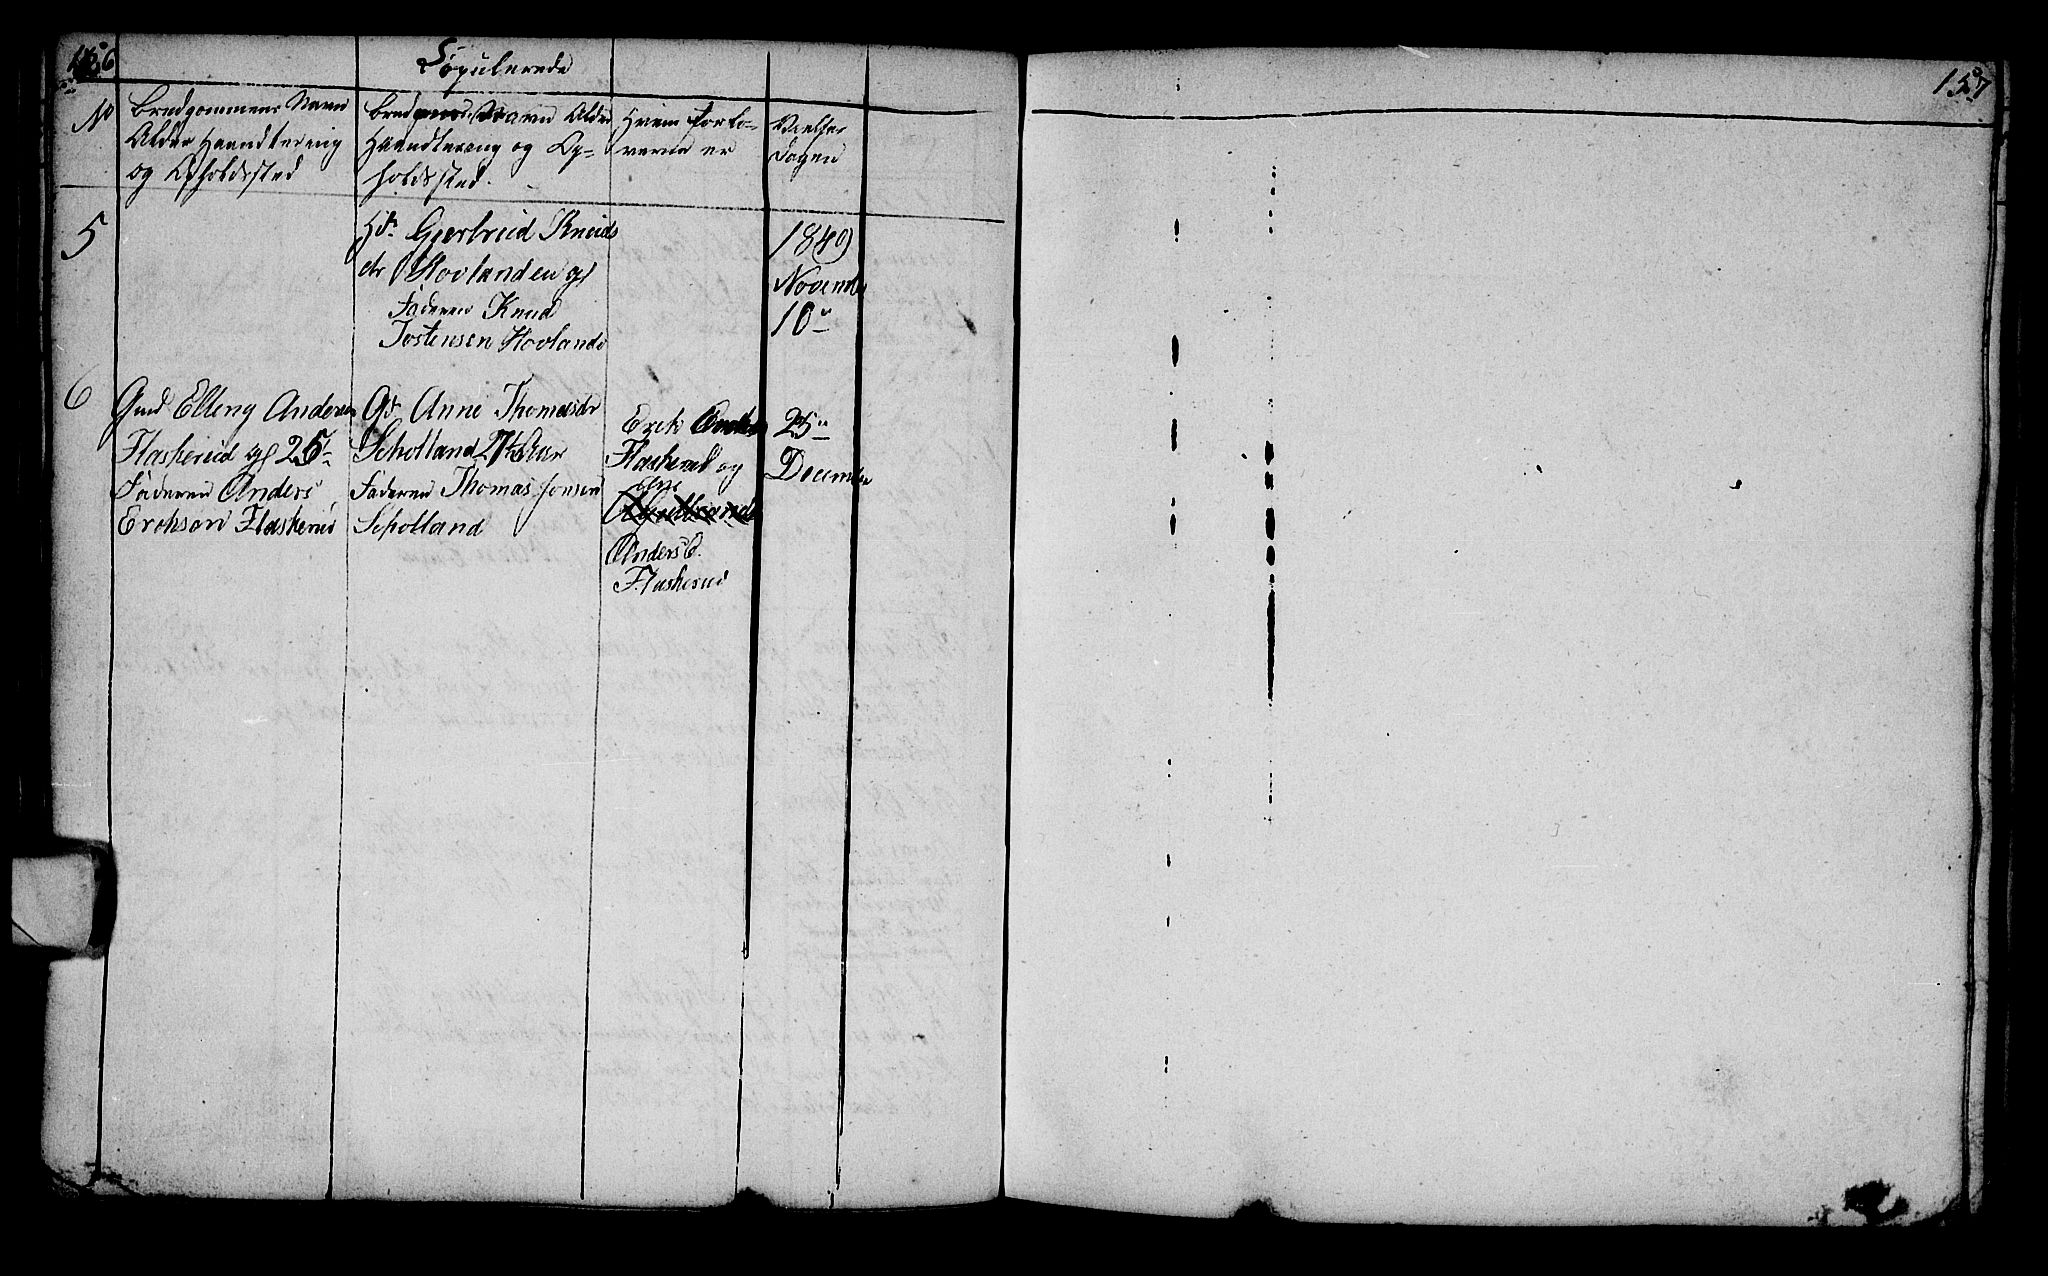 156
Copulerede
No
Brudgommens Navn
Alder Haandtering
og Opholdssted
Brudens Navn Alder
Haandtering og Op-
holdssted.
Hvem Forlo-
verne er
Vielses
Dagen
5
Gjertrud Knuds
dr Hovlanden gl
Faderen Knud
Tostensen Hovland
1849
Novembr
10
6
Elleng Anders
Flaskerud gl 25
Faderen Anders
Erekson Flaskerud
Anne Thomasdr
Scholland
Faderen Thomas Jonsen
Scholland
Erek
Flaskerud og
Anders E.
Flaskerud
25
December
157